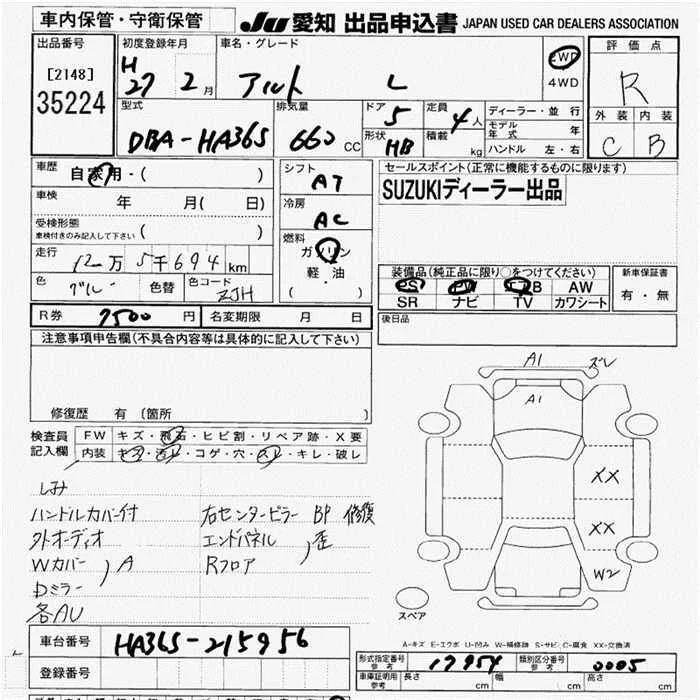 車内保管・守衛保管
JU 愛知 出品申込書 JAPAN USED CAR DEALERS ASSOCIATION
出品番号
[2148]
35224
初度登録年月
H
27 2 月
車名・グレード
アルト L
2WD
4WD
評価点
R
外装 内装
C B
型式
DBA-HA36S
排気量
660 CC
ドア
5
形状
HB
定員
4人
積載
kg
ディーラー・並行
モデル年式 年
ハンドル 左・右
車歴
自家用・( )
車検
年 月( 日)
受検形態
車検付きのみ記入して下さい ( )
走行
12万5千694km
色
ブルー
色替
色コード
ZJH
シフト
AT
冷房
AC
燃料
ガソリン
軽・油
( )
セールスポイント(正常に機能するものに限ります)
SUZUKIディーラー出品
装備品(純正品に限り○をつけてください)
PS PW エアB AW
SR ナビ TV カワシート
新車保証書
有・無
後日品
R券 7500 円
名変期限 月 日
注意事項申告欄(不具合内容等は具体的に記入して下さい)
修復歴 有 (箇所 )
検査員
記入欄
FW キズ・飛石・ヒビ割・リペア跡・X要
内装 キズ・汚れ・コゲ・穴・スレ・キレ・破レ
しみ
ハンドルカバー付
外オーディオ
Wカバー
Dミラー
,A
各AU
右センターピラー BP 修復
エンドパネル
Rフロア
,歪
A1 ズレ
A1
XX
XX
W2
スペア
A-キズ E-エクボ U-凹み W-補修跡 S-サビ C-腐食 XX-交換済
車台番号
HA36S-215956
登録番号
形式指定番号
参考
17954
類別区分番号
参考
0005
車庫証明用
参考
長さ cm
幅 cm
高さ cm